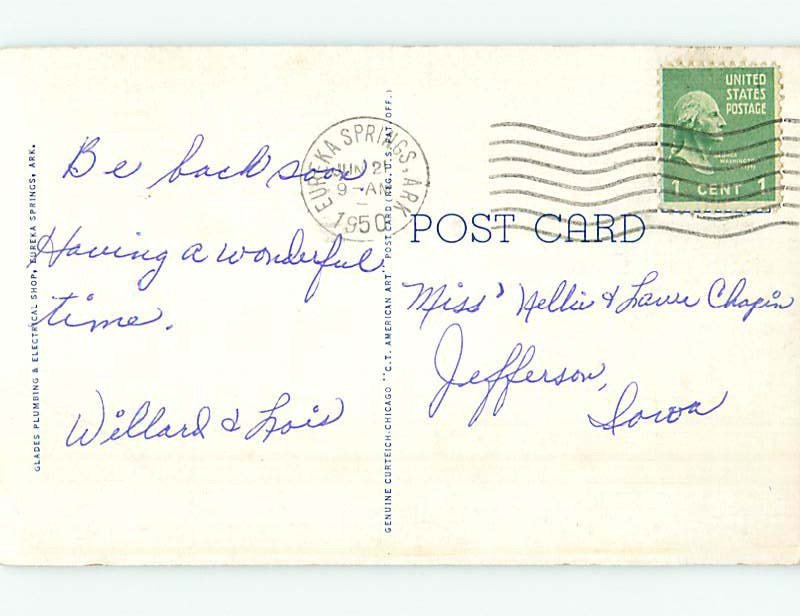 GLADES PLUMBING & ELECTRICAL SHOP, EUREKA SPRINGS, ARK.
Be back soon.
Having a wonderful
time.
Willard & Lois
GENUINE CURTEICH-CHICAGO "C.T. AMERICAN ART" POST CARD (REG. U.S. PAT. OFF.)
EUREKA SPRINGS, ARK
JUN 2
9-AM
1950
UNITED
STATES
POSTAGE
GEORGE
WASHINGTON
1 CENT 1
POST CARD
Miss' Nellie & Chapin
Jefferson,
Iowa